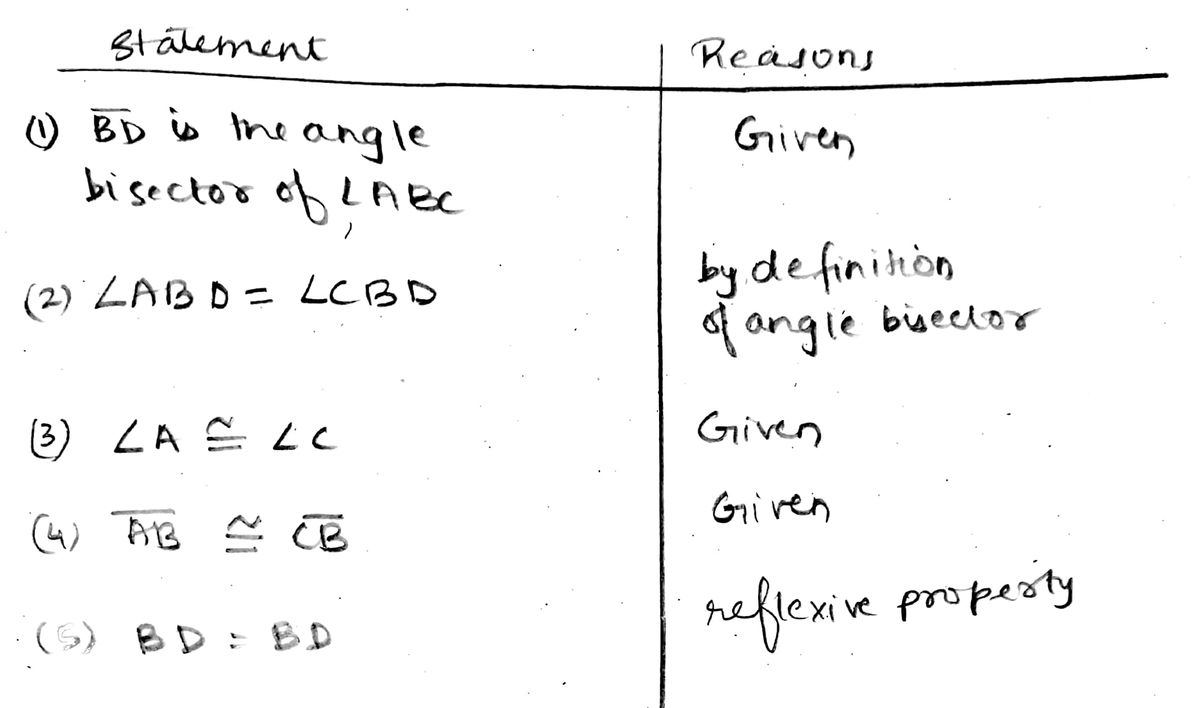 Statement
Reasons
(1) BD is the angle
bisector of ∠ABC
Given
(2) ∠ABD = ∠CBD
by definition
of angle bisector
(3) ∠A ≅ ∠C
Given
(4) A̅B̅ ≅ C̅B̅
Given
(5) BD = BD
reflexive property